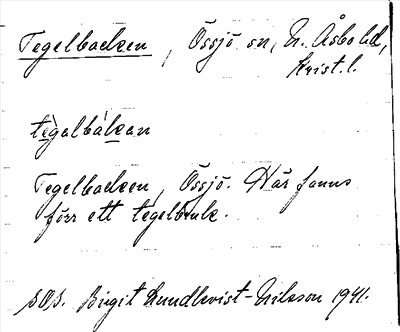 Tegelbacken, Össjö sn, N. Åsbo hd,
Krist. l.
tegalbakan
Tegelbacken, Össjö. Här fanns
förr ett tegelbruk.
SOS. Birgit Lundkvist-Nilsson 1941.